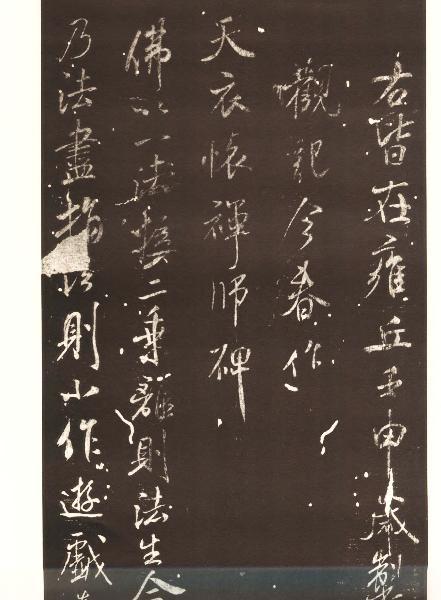 右皆在雍丘壬申歲製
觀觀今春作
天衣懷禪師碑
佛以一法整二乘離則法生今
乃法盡指 則小作遊戲